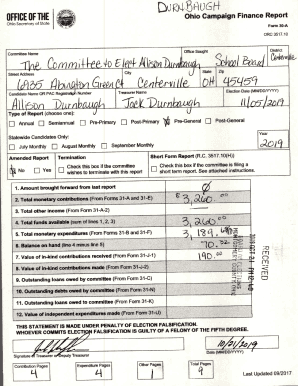 DURNBAUGH
OFFICE OF THE Ohio Campaign Finance Report
Ohio Secretary of State
Form 30-A
ORC 3517.10
Committee Name Office Sought District
The Committee to Elect Allison Durnbaugh School Board Centerville
Street Address City State Zip
6835 Abington Green Ct Centerville OH 45459
Candidate Name OR PAC Registration Number Treasurer Name Election Date (MM/DD/YYYY)
Allison Durnbaugh Jack Durnbaugh 11/05/2019
Type of Report (choose one):
Annual Semiannual Pre-Primary Post-Primary Pre-General Post-General
Statewide Candidates Only: Year
July Monthly August Monthly September Monthly 2019
Amended Report Termination Short Form Report (R.C. 3517.10(H))
No Yes Check this box if the committee wishes to terminate with this report Check this box if the committee is filing a short form report. See attached instructions.
1. Amount brought forward from last report 0
2. Total monetary contributions (From Forms 31-A and 31-E) $ 3,260.00
3. Total other income (From Form 31-A-2)
4. Total funds available (sum of lines 1, 2, 3) 3,260.00
5. Total monetary expenditures (From Forms 31-B and 31-F) 3,189.
6. Balance on hand (line 4 minus line 5) 70.
7. Value of in-kind contributions received (From Form 31-J-1) 190.00
8. Value of in-kind contributions made (From Form 31-J-2)
9. Outstanding loans owed by committee (From Form 31-C)
10. Outstanding debts owed by committee (From Form 31-N)
11. Outstanding loans owed to committee (From Form 31-K)
12. Value of independent expenditures made (From Form 31-U)
RECEIVED
THIS STATEMENT IS MADE UNDER PENALTY OF ELECTION FALSIFICATION.
WHOEVER COMMITS ELECTION FALSIFICATION IS GUILTY OF A FELONY OF THE FIFTH DEGREE.
10/21/2019
Signature of Treasurer or Deputy Treasurer Date (MM/DD/YYYY)
Contribution Pages Expenditure Pages Other Pages Total Pages
4 4 1 9
Last Updated 09/2017